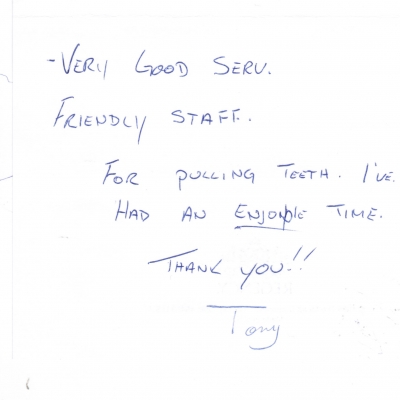 - VERY GOOD SERV.
FRIENDLY STAFF.
FOR PULLING TEETH. I'VE.
HAD AN ENJOYBLE TIME.
THANK YOU!!
Tony